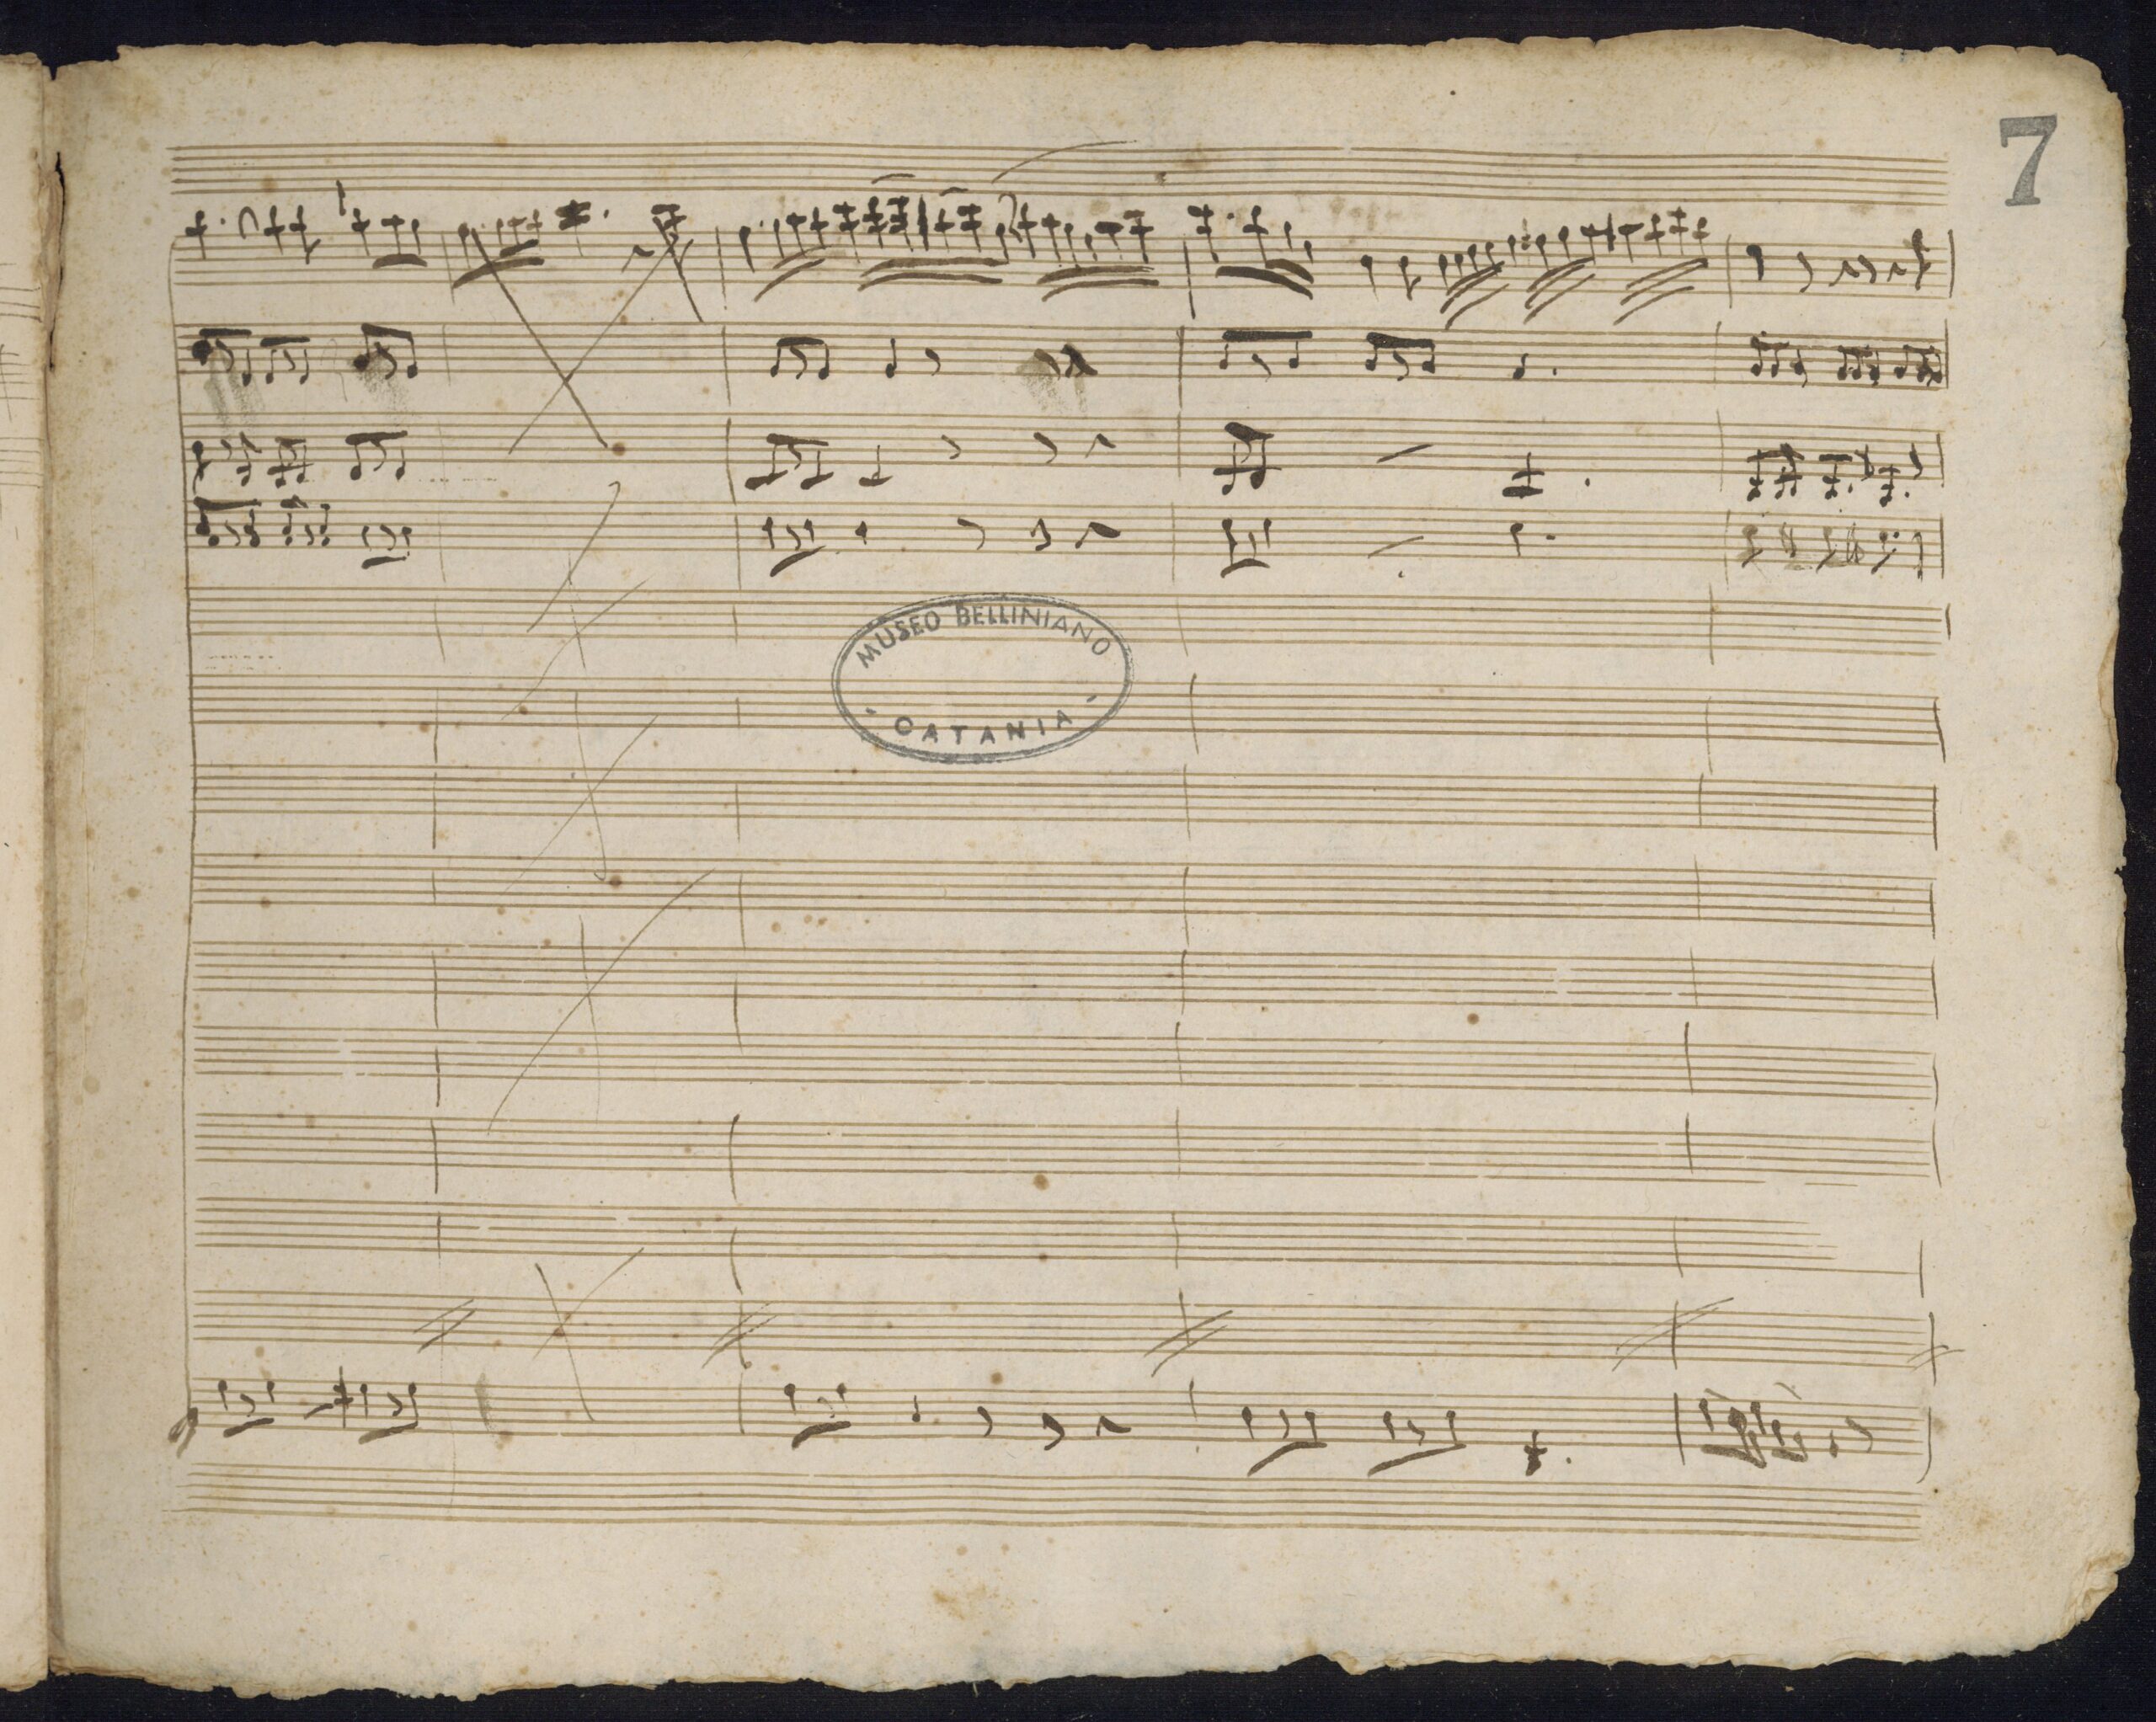 7
MUSEO BELLINIANO
- CATANIA -